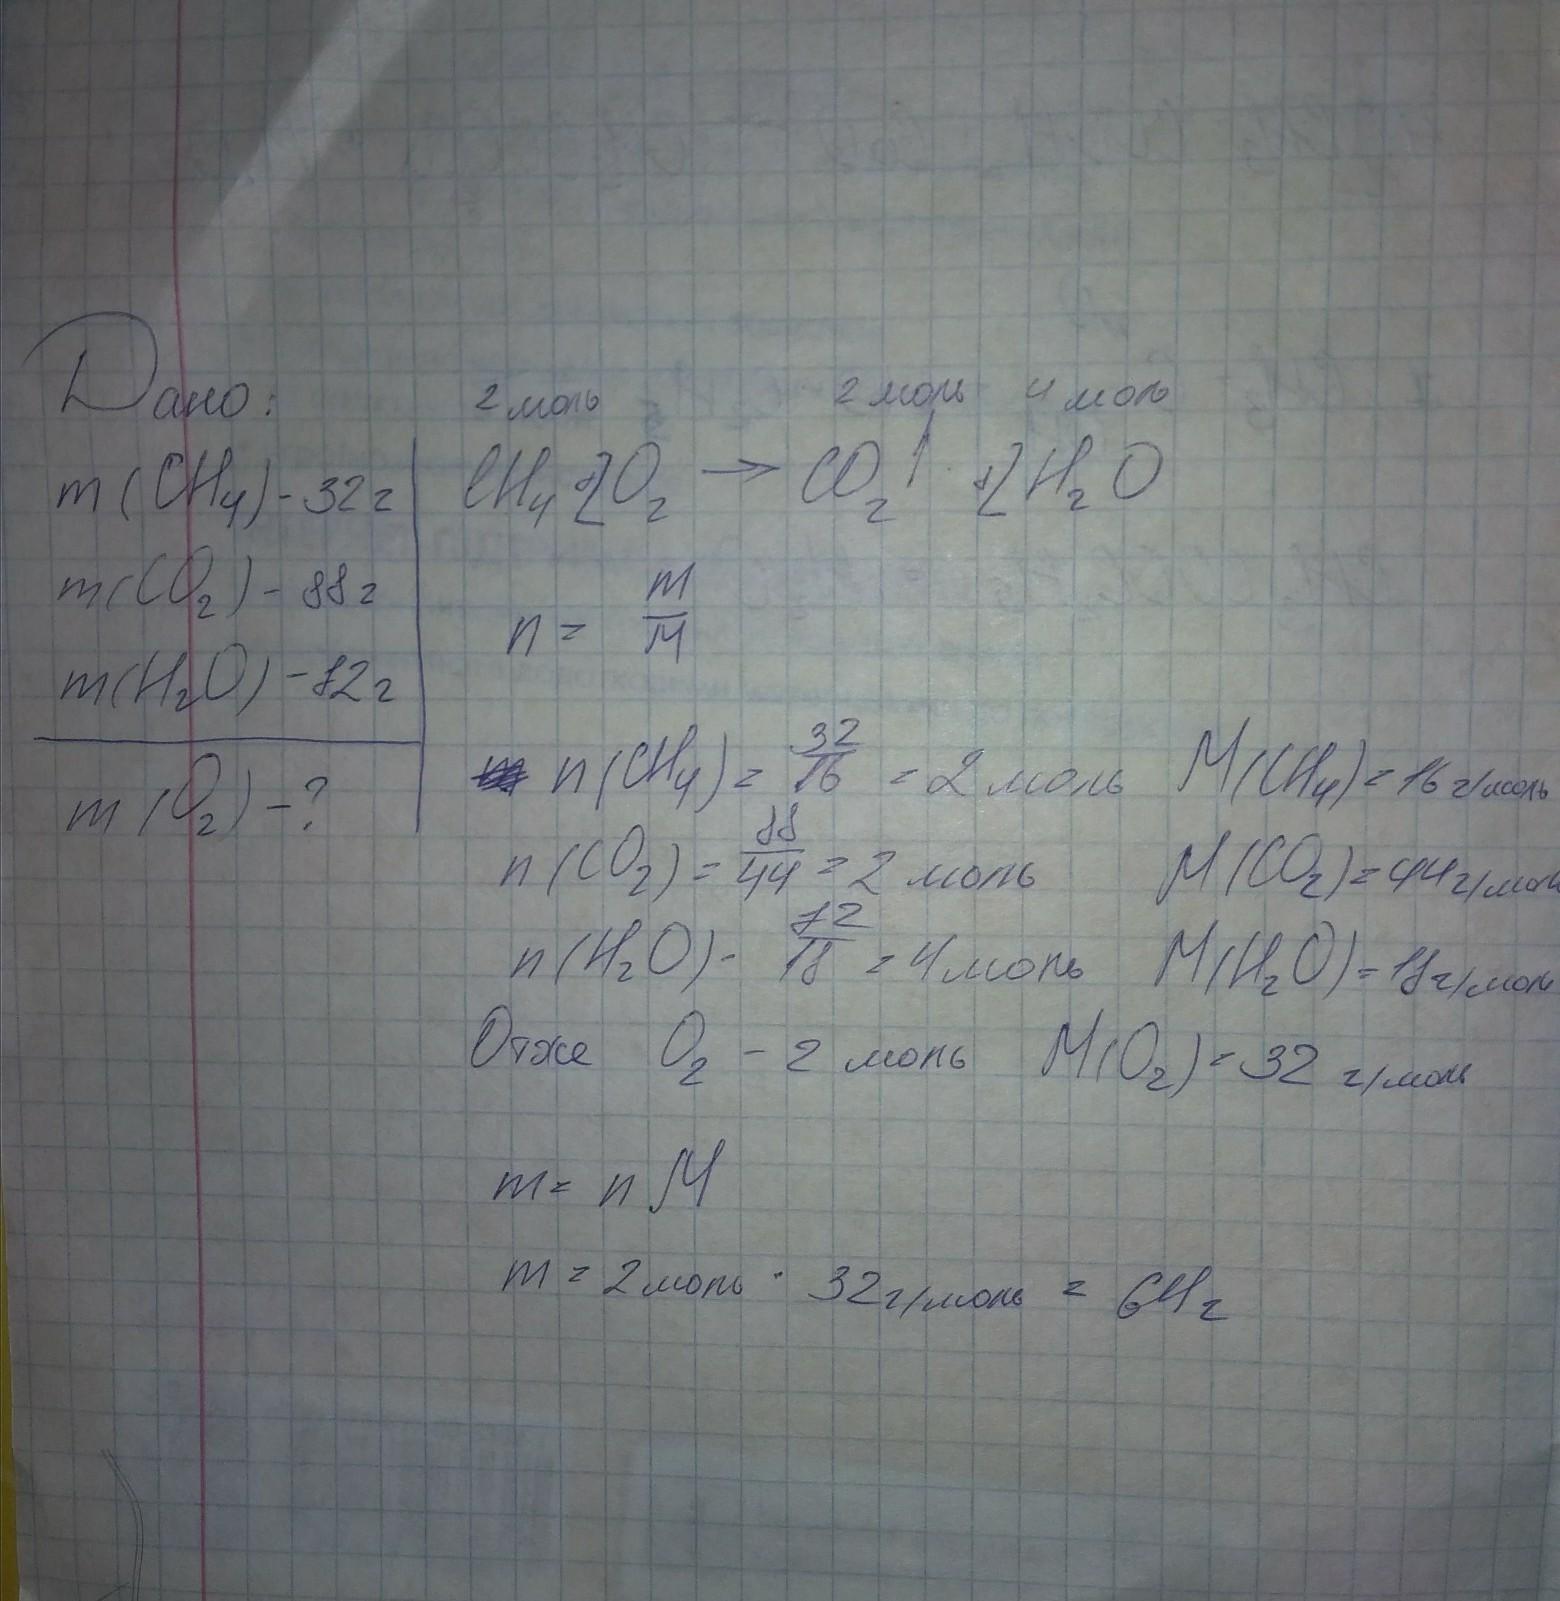 Дано:
m(CH₄) - 32г
m(CO₂) - 88г
m(H₂O) - 72г
m(O₂) - ?
2 моль 2 моль 4 моль
CH₄ + 2O₂ → CO₂↑ + 2H₂O
n = m/M
n(CH₄) = 32/16 = 2 моль M(CH₄) = 16 г/моль
n(CO₂) = 88/44 = 2 моль M(CO₂) = 44 г/моль
n(H₂O) - 72/18 = 4 моль M(H₂O) = 18 г/моль
Отже O₂ - 2 моль M(O₂) = 32 г/моль
m = n M
m = 2 моль · 32 г/моль = 64 г